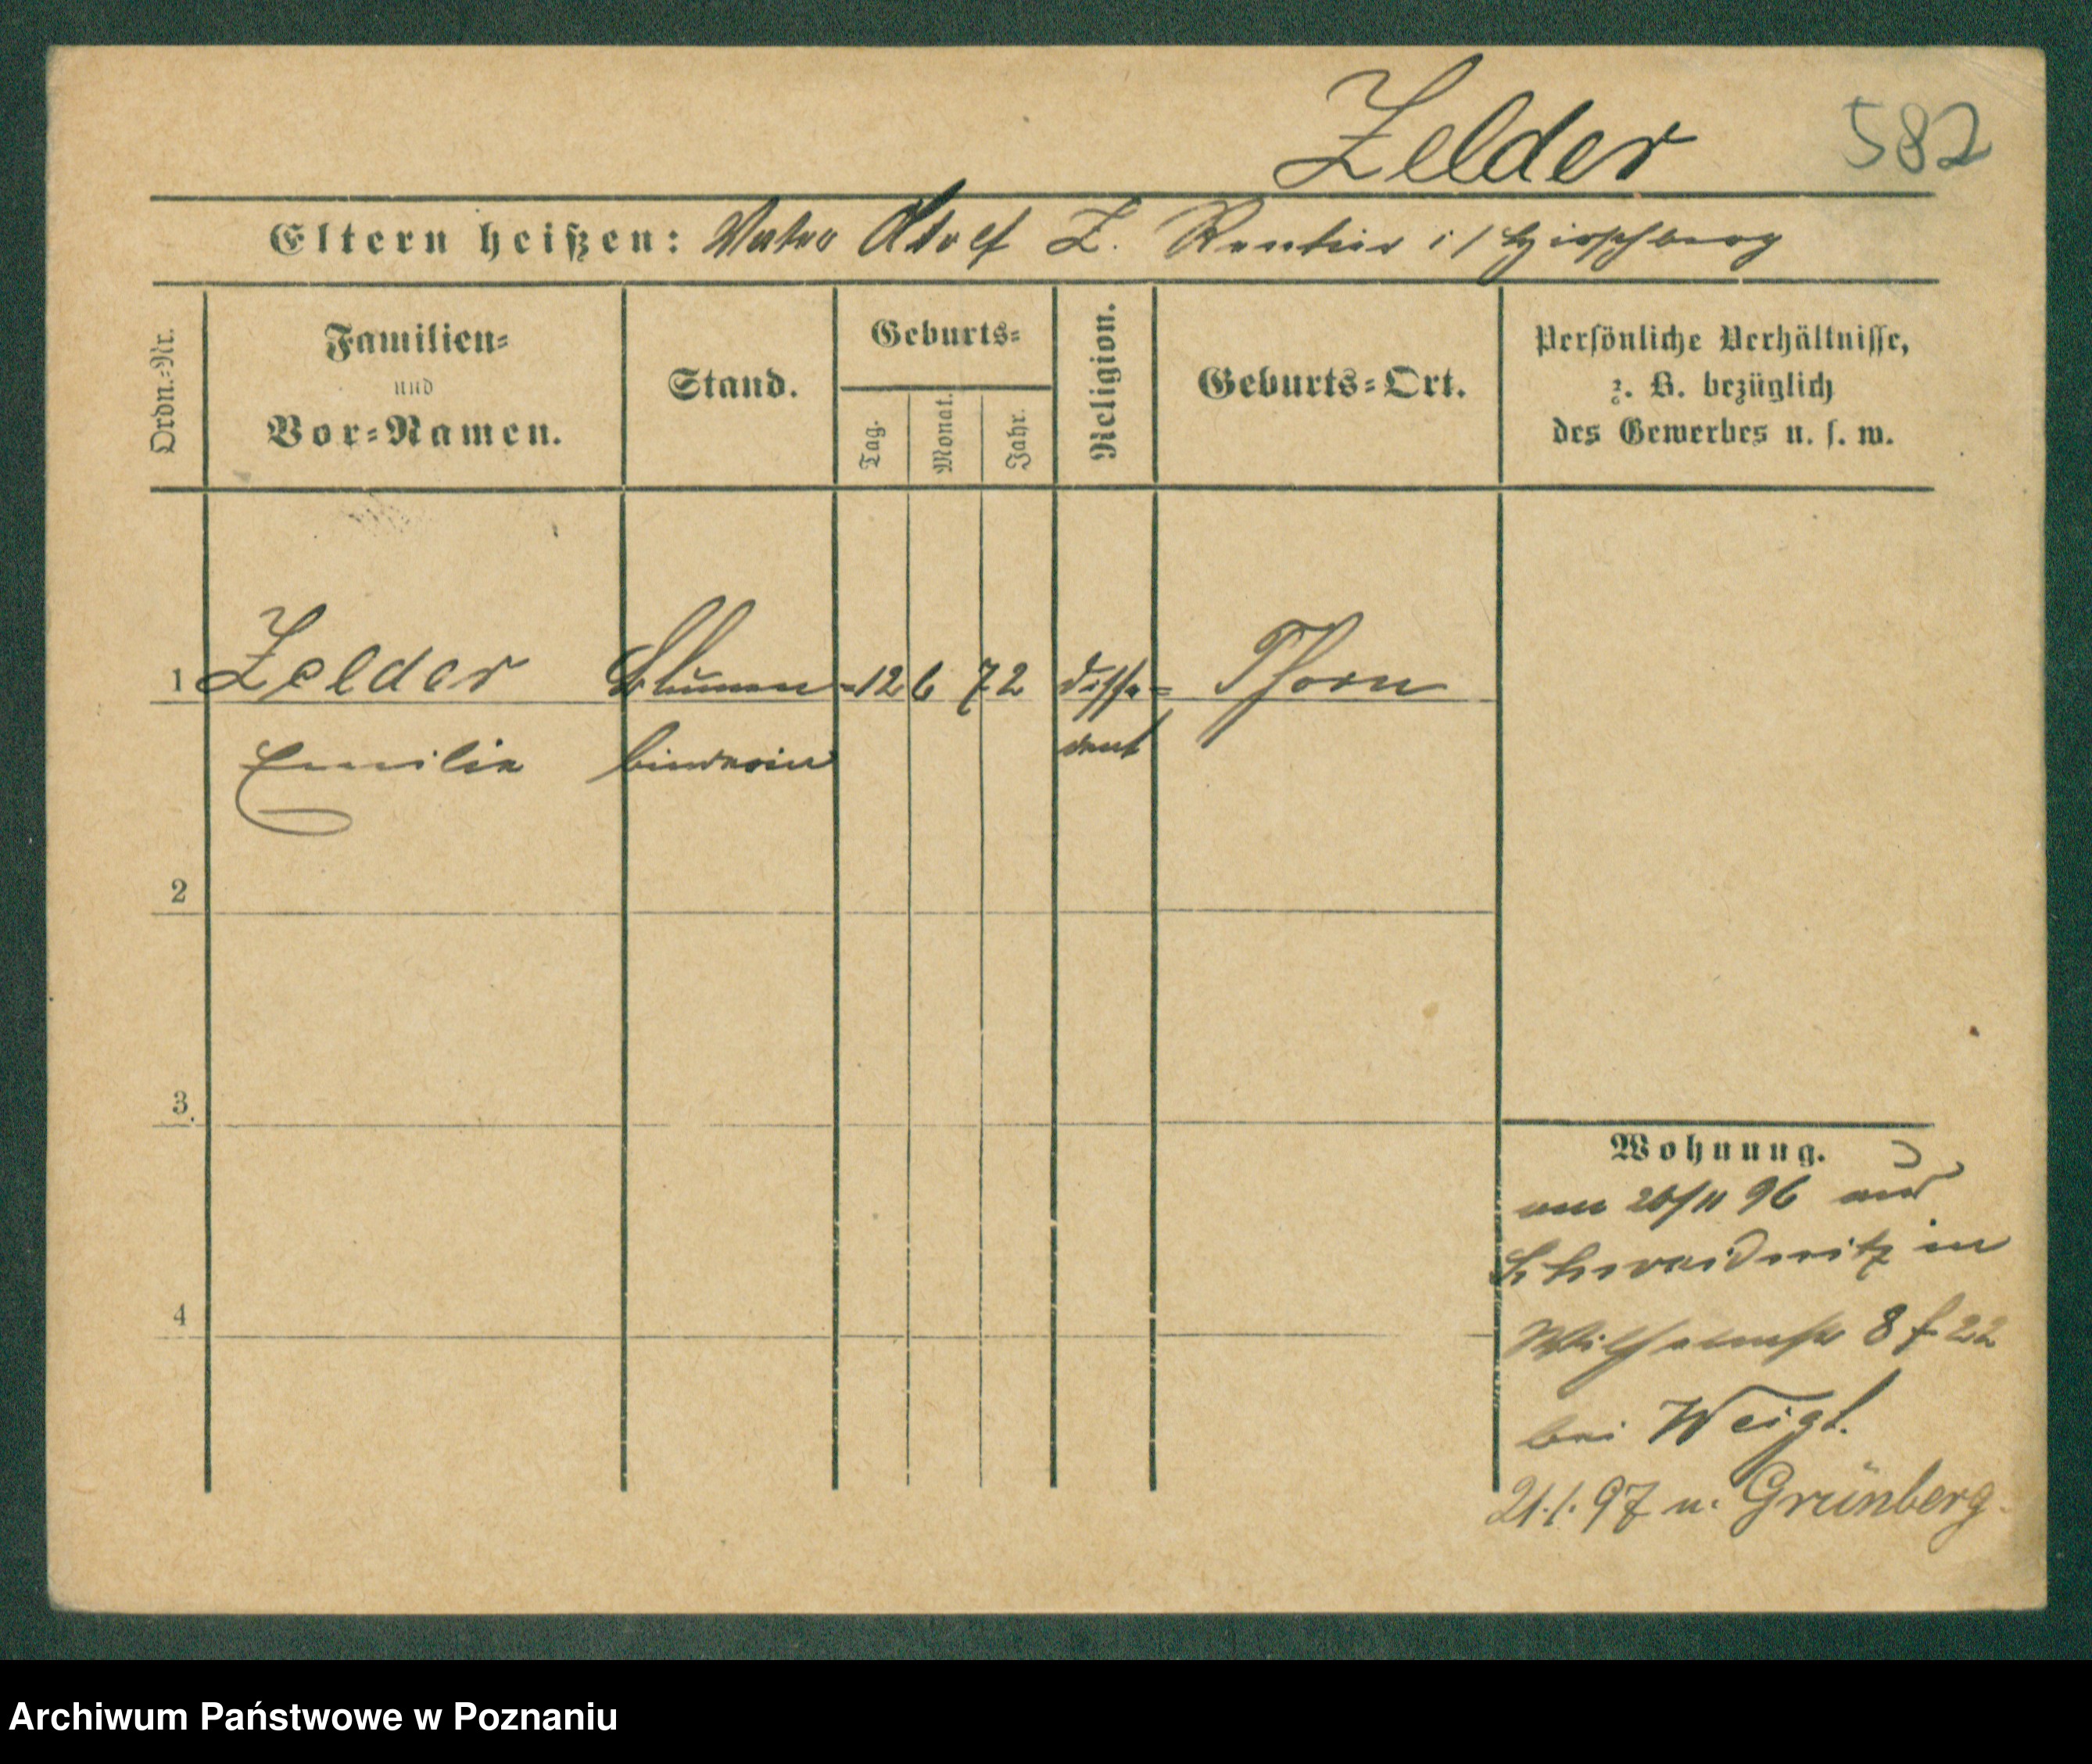 Zelder 582
Eltern heißen: Vater Adolf Z. Rentier i/ Hirschberg
Ordn.-Nr.
Familien-
und
Vor-Namen.
Stand.
Geburts-
Tag. Monat. Jahr.
Religion.
Geburts-Ort.
Persönliche Verhältnisse,
z. B. bezüglich
des Gewerbes u. s. w.
1 Zelder Blumen- 12 6 72 dissi- Thorn
Emilie binderin dent
2
3.
4
Wohnung.
26/11 96 aus
Schweidnitz in
Wilhelmstr 8 f 22
bei Weigt.
21.1.97 n. Grünberg.
Archiwum Państwowe w Poznaniu